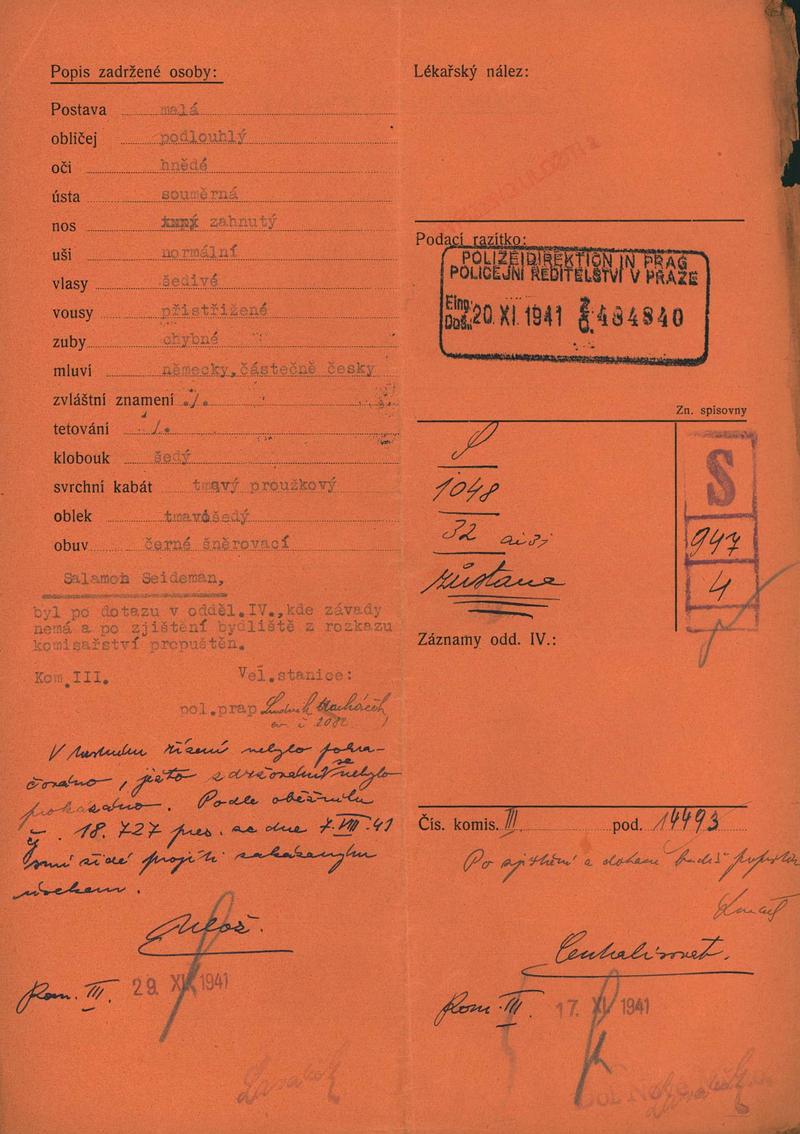 Popis zadržené osoby:
Postava malá
obličej podlouhlý
oči hnědé
ústa souměrná
nos zahnutý
uši normální
vlasy šedivé
vousy přistřižené
zuby chybné
mluví německy,částečně česky
zvláštní znamení ./.
tetování ./.
klobouk šedý
svrchní kabát tmavý proužkový
oblek tmavošedý
obuv černé šněrovací
Salamon Seideman,
byl po dotazu v odděl.IV.,kde závady
nemá a po zjištění bydliště z rozkazu
komisařství propuštěn.
Kom.III. Vel.stanice:
pol.prap
V trestním řízení nebylo pokra-
čováno, ježto zdržování se nebylo
prokázáno. Podle oběžníku
č. 18.727 pres. ze dne 7.VIII.41
smí židé projíti zakázaným
úsekem.
Kom. III. 29. XI. 1941
Lékařský nález:
Podací razítko:
POLIZEIDIREKTION IN PRAG
POLICEJNÍ ŘEDITELSTVÍ V PRAZE
Eing.
Doš. 20 XI. 1941 Z. 484840
Č.
Zn. spisovny
S
1048
32
zůstane
S
947
4
Záznamy odd. IV.:
Čís. komis. III pod. 14493
Po zjištění a dotazu budiž
Kom. III. 17. XI. 1941